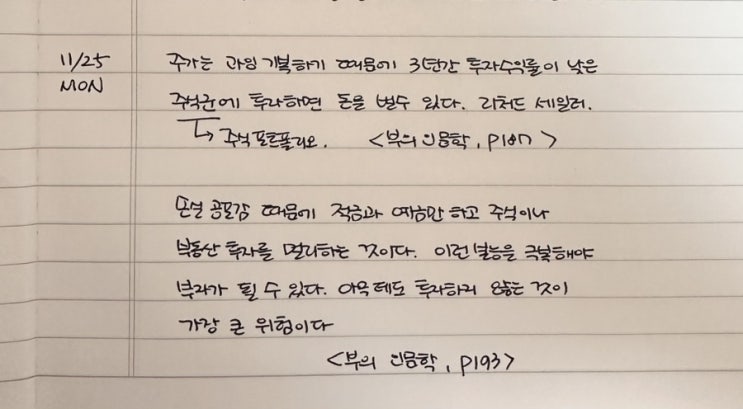 11/25
MON
주가는 과잉 기복하기 때문에 3년간 투자수익률이 낮은
주식군에 투자하면 돈을 벌수 있다. 리처드 세일러.
↳ 주식 포트폴리오. <부의 인문학, p187>
손실 공포감 때문에 적금과 예금만 하고 주식이나
부동산 투자를 멀리하는 것이다. 이런 본능을 극복해야
부자가 될 수 있다. 아무 데도 투자하지 않는 것이
가장 큰 위험이다
<부의 인문학, p193>